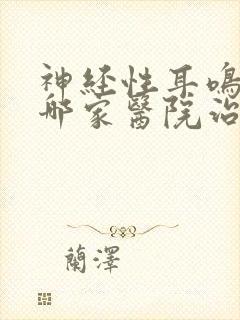 神经性耳鸣
那家醫院治
蘭澤